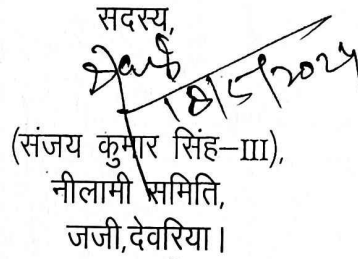 सदस्य,
18/5/2024
(संजय कुमार सिंह–III),
नीलामी समिति,
जजी,देवरिया।